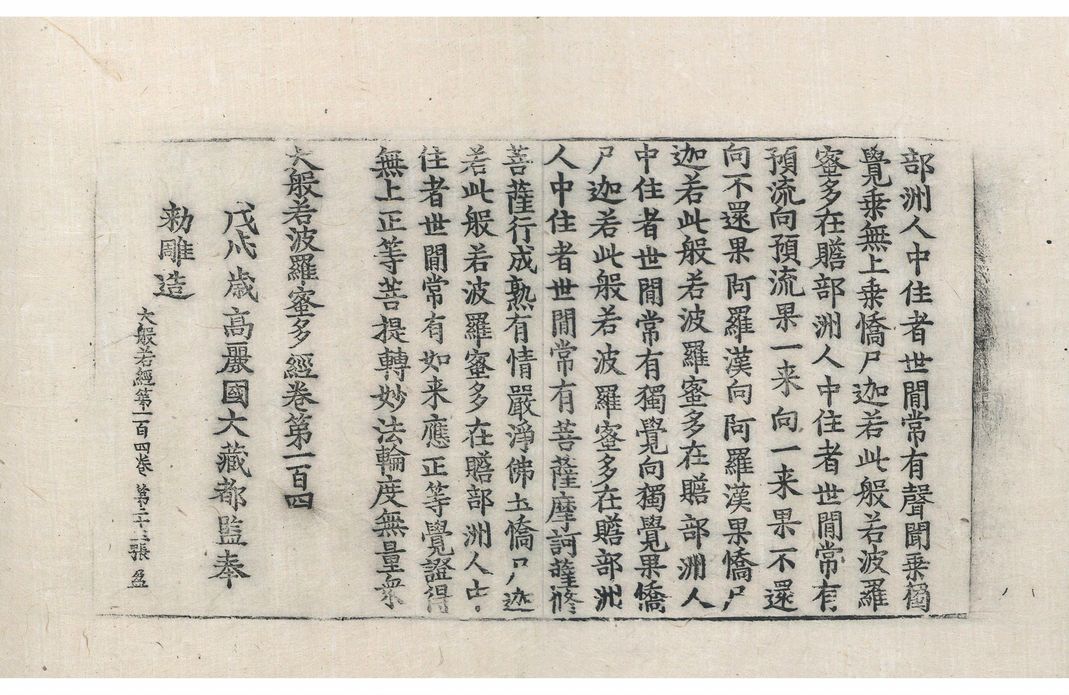 部洲人中住者世閒常有聲聞乗獨
覺乗無上乗憍尸迦若此般若波羅
蜜多在贍部洲人中住者世閒常有
預流向預流果一来向一来果不還
向不還果阿羅漢向阿羅漢果憍尸
迦若此般若波羅蜜多在贍部洲人
中住者世閒常有獨覺向獨覺果憍
尸迦若此般若波羅蜜多在贍部洲
人中住者世閒常有菩薩摩訶薩修
菩薩行成熟有情嚴淨佛土憍尸迦
若此般若波羅蜜多在贍部洲人中
住者世閒常有如来應正等覺證得
無上正等菩提轉妙法輪度無量衆
大般若波羅蜜多經卷第一百四
戊戌歲高麗國大藏都監奉
勅雕造
大般若經第一百四卷 第二十三張 盈